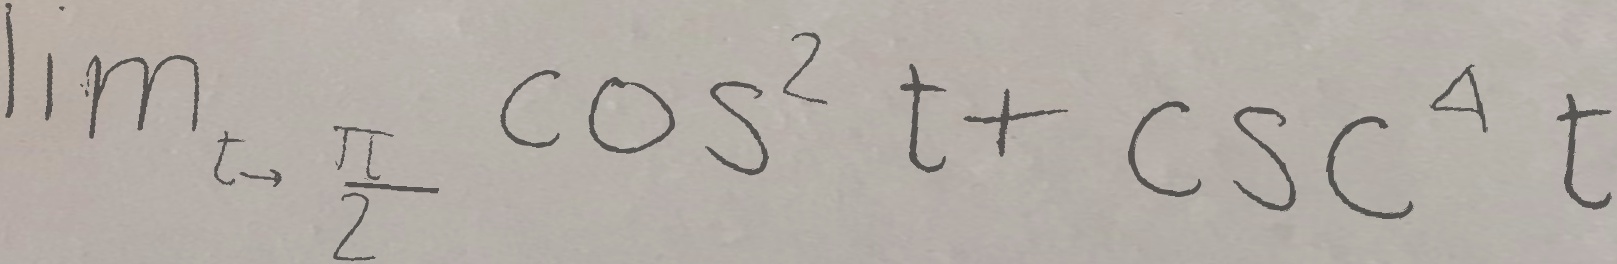 \lim_{t \to \frac{\pi}{2}} \cos^2 t + \csc^4 t